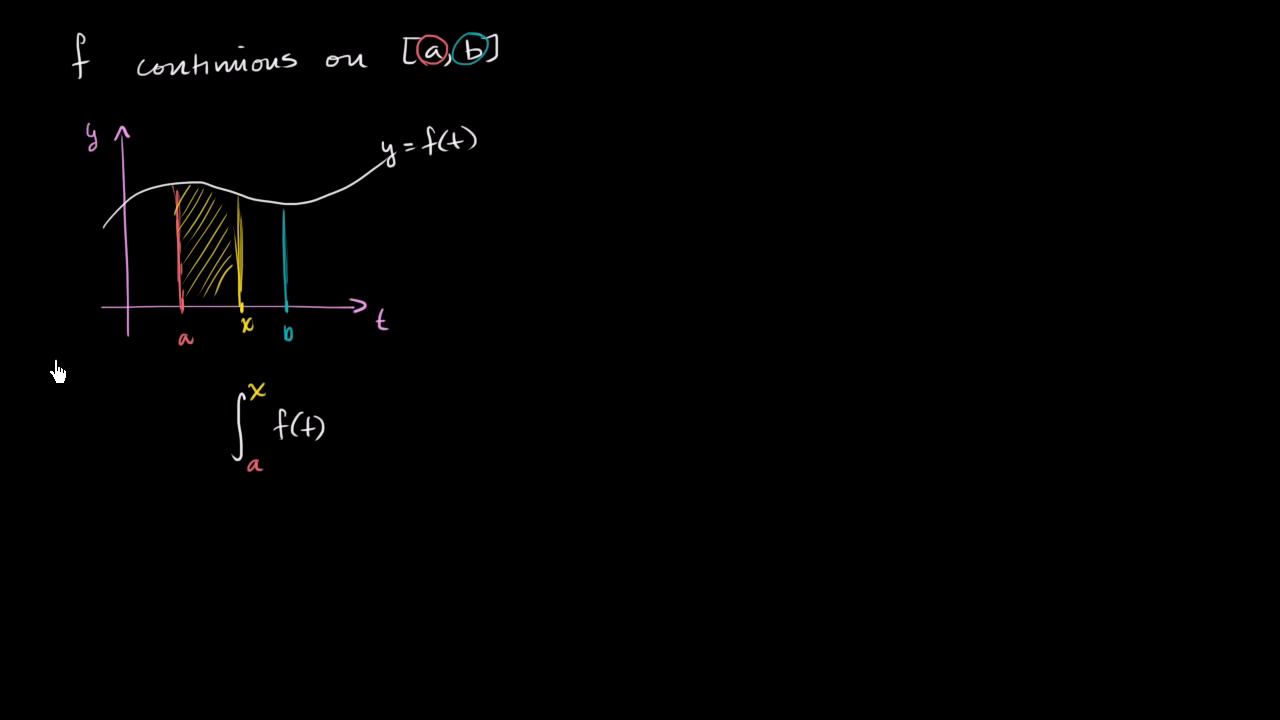 f continuous on [a,b]
y
y = f(t)
a x b t
∫ₐˣ f(t)